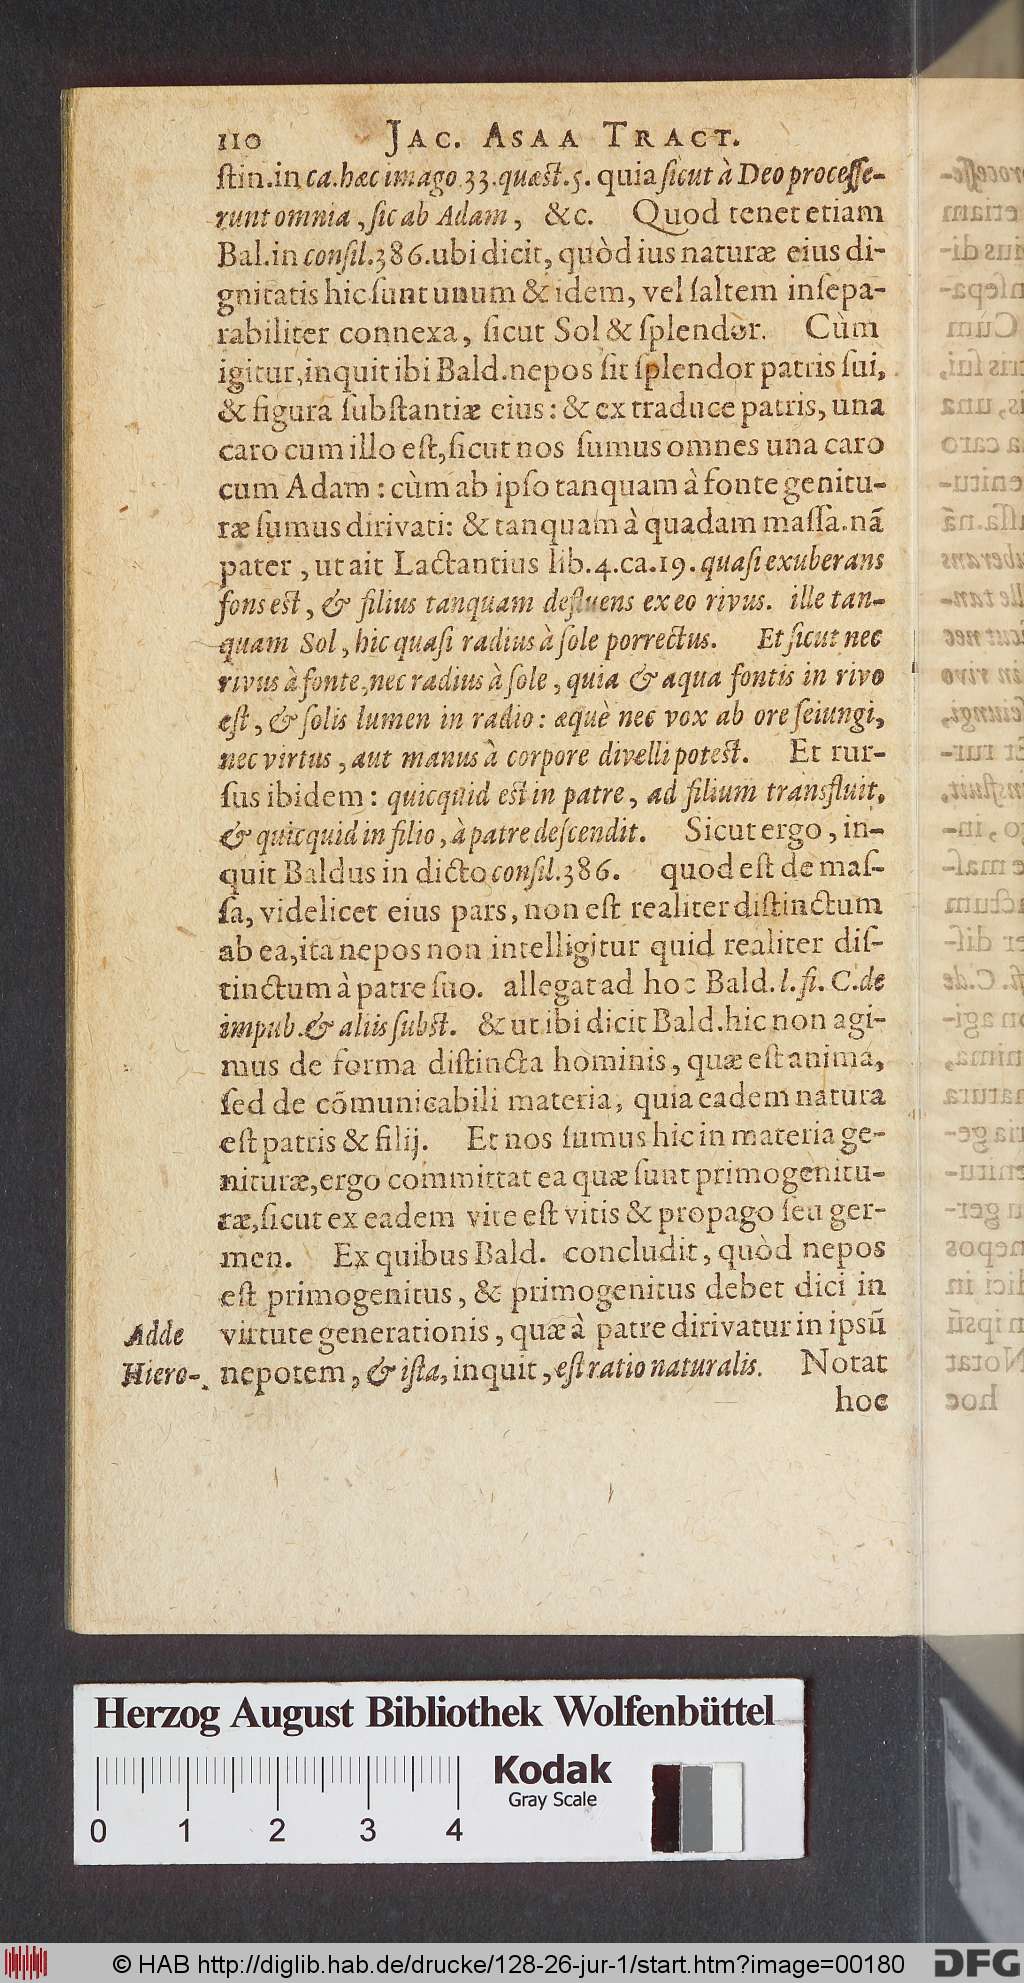 110 JAC. ASAA TRACT.
ſtin. in ca. hæc imago 33. quæſt. 5. quia ſicut à Deo proceſſe-
runt omnia, ſic ab Adam, &c. Quod tenet etiam
Bal. in conſil. 386. ubi dicit, quòd ius naturæ eius di-
gnitatis hic ſunt unum & idem, vel ſaltem inſepa-
rabiliter connexa, ſicut Sol & ſplendor. Cùm
igitur, inquit ibi Bald. nepos ſit ſplendor patris ſui,
& figura ſubſtantiæ eius: & ex traduce patris, una
caro cum illo eſt, ſicut nos ſumus omnes una caro
cum Adam: cùm ab ipſo tanquam à fonte genitu-
ræ ſumus dirivati: & tanquam à quadam maſſa. nã
pater, ut ait Lactantius lib. 4. ca. 19. quaſi exuberans
fons eſt, & filius tanquam defluens ex eo rivus. ille tan-
quam Sol, hic quaſi radius à ſole porrectus. Et ſicut nec
rivus à fonte, nec radius à ſole, quia & aqua fontis in rivo
eſt, & ſolis lumen in radio: æquè nec vox ab ore ſeiungi,
nec virtus, aut manus à corpore divelli poteſt. Et rur-
ſus ibidem: quicquid eſt in patre, ad filium transfluit,
& quicquid in filio, à patre deſcendit. Sicut ergo, in-
quit Baldus in dicto conſil. 386. quod eſt de maſ-
ſa, videlicet eius pars, non eſt realiter diſtinctum
ab ea, ita nepos non intelligitur quid realiter diſ-
tinctum à patre ſuo. allegat ad hoc Bald. l. fi. C. de
impub. & aliis ſubſt. & ut ibi dicit Bald. hic non agi-
mus de forma diſtincta hominis, quæ eſt anima,
ſed de cõmunicabili materia, quia eadem natura
eſt patris & filij. Et nos ſumus hic in materia ge-
nituræ, ergo committat ea quæ ſunt primogenitu-
ræ, ſicut ex eadem vite eſt vitis & propago ſeu ger-
men. Ex quibus Bald. concludit, quòd nepos
eſt primogenitus, & primogenitus debet dici in
Adde virtute generationis, quæ à patre dirivatur in ipſũ
Hiero- nepotem, & iſta, inquit, eſt ratio naturalis. Notat
hoc
Herzog August Bibliothek Wolfenbüttel
Kodak
Gray Scale
0 1 2 3 4
© HAB http://diglib.hab.de/drucke/128-26-jur-1/start.htm?image=00180
DFG